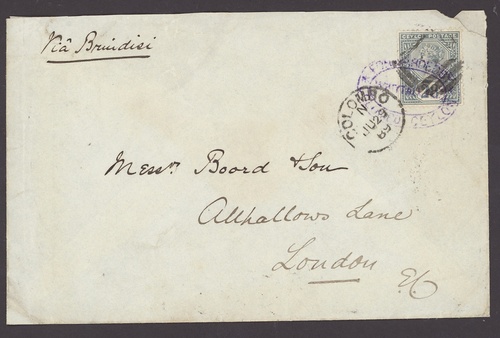 Viâ Brindisi
CEYLON POSTAGE
COLOMBO
N
JU 29
89
CEYLON
Messrs Boord & Son
Allhallows Lane
London
E.C